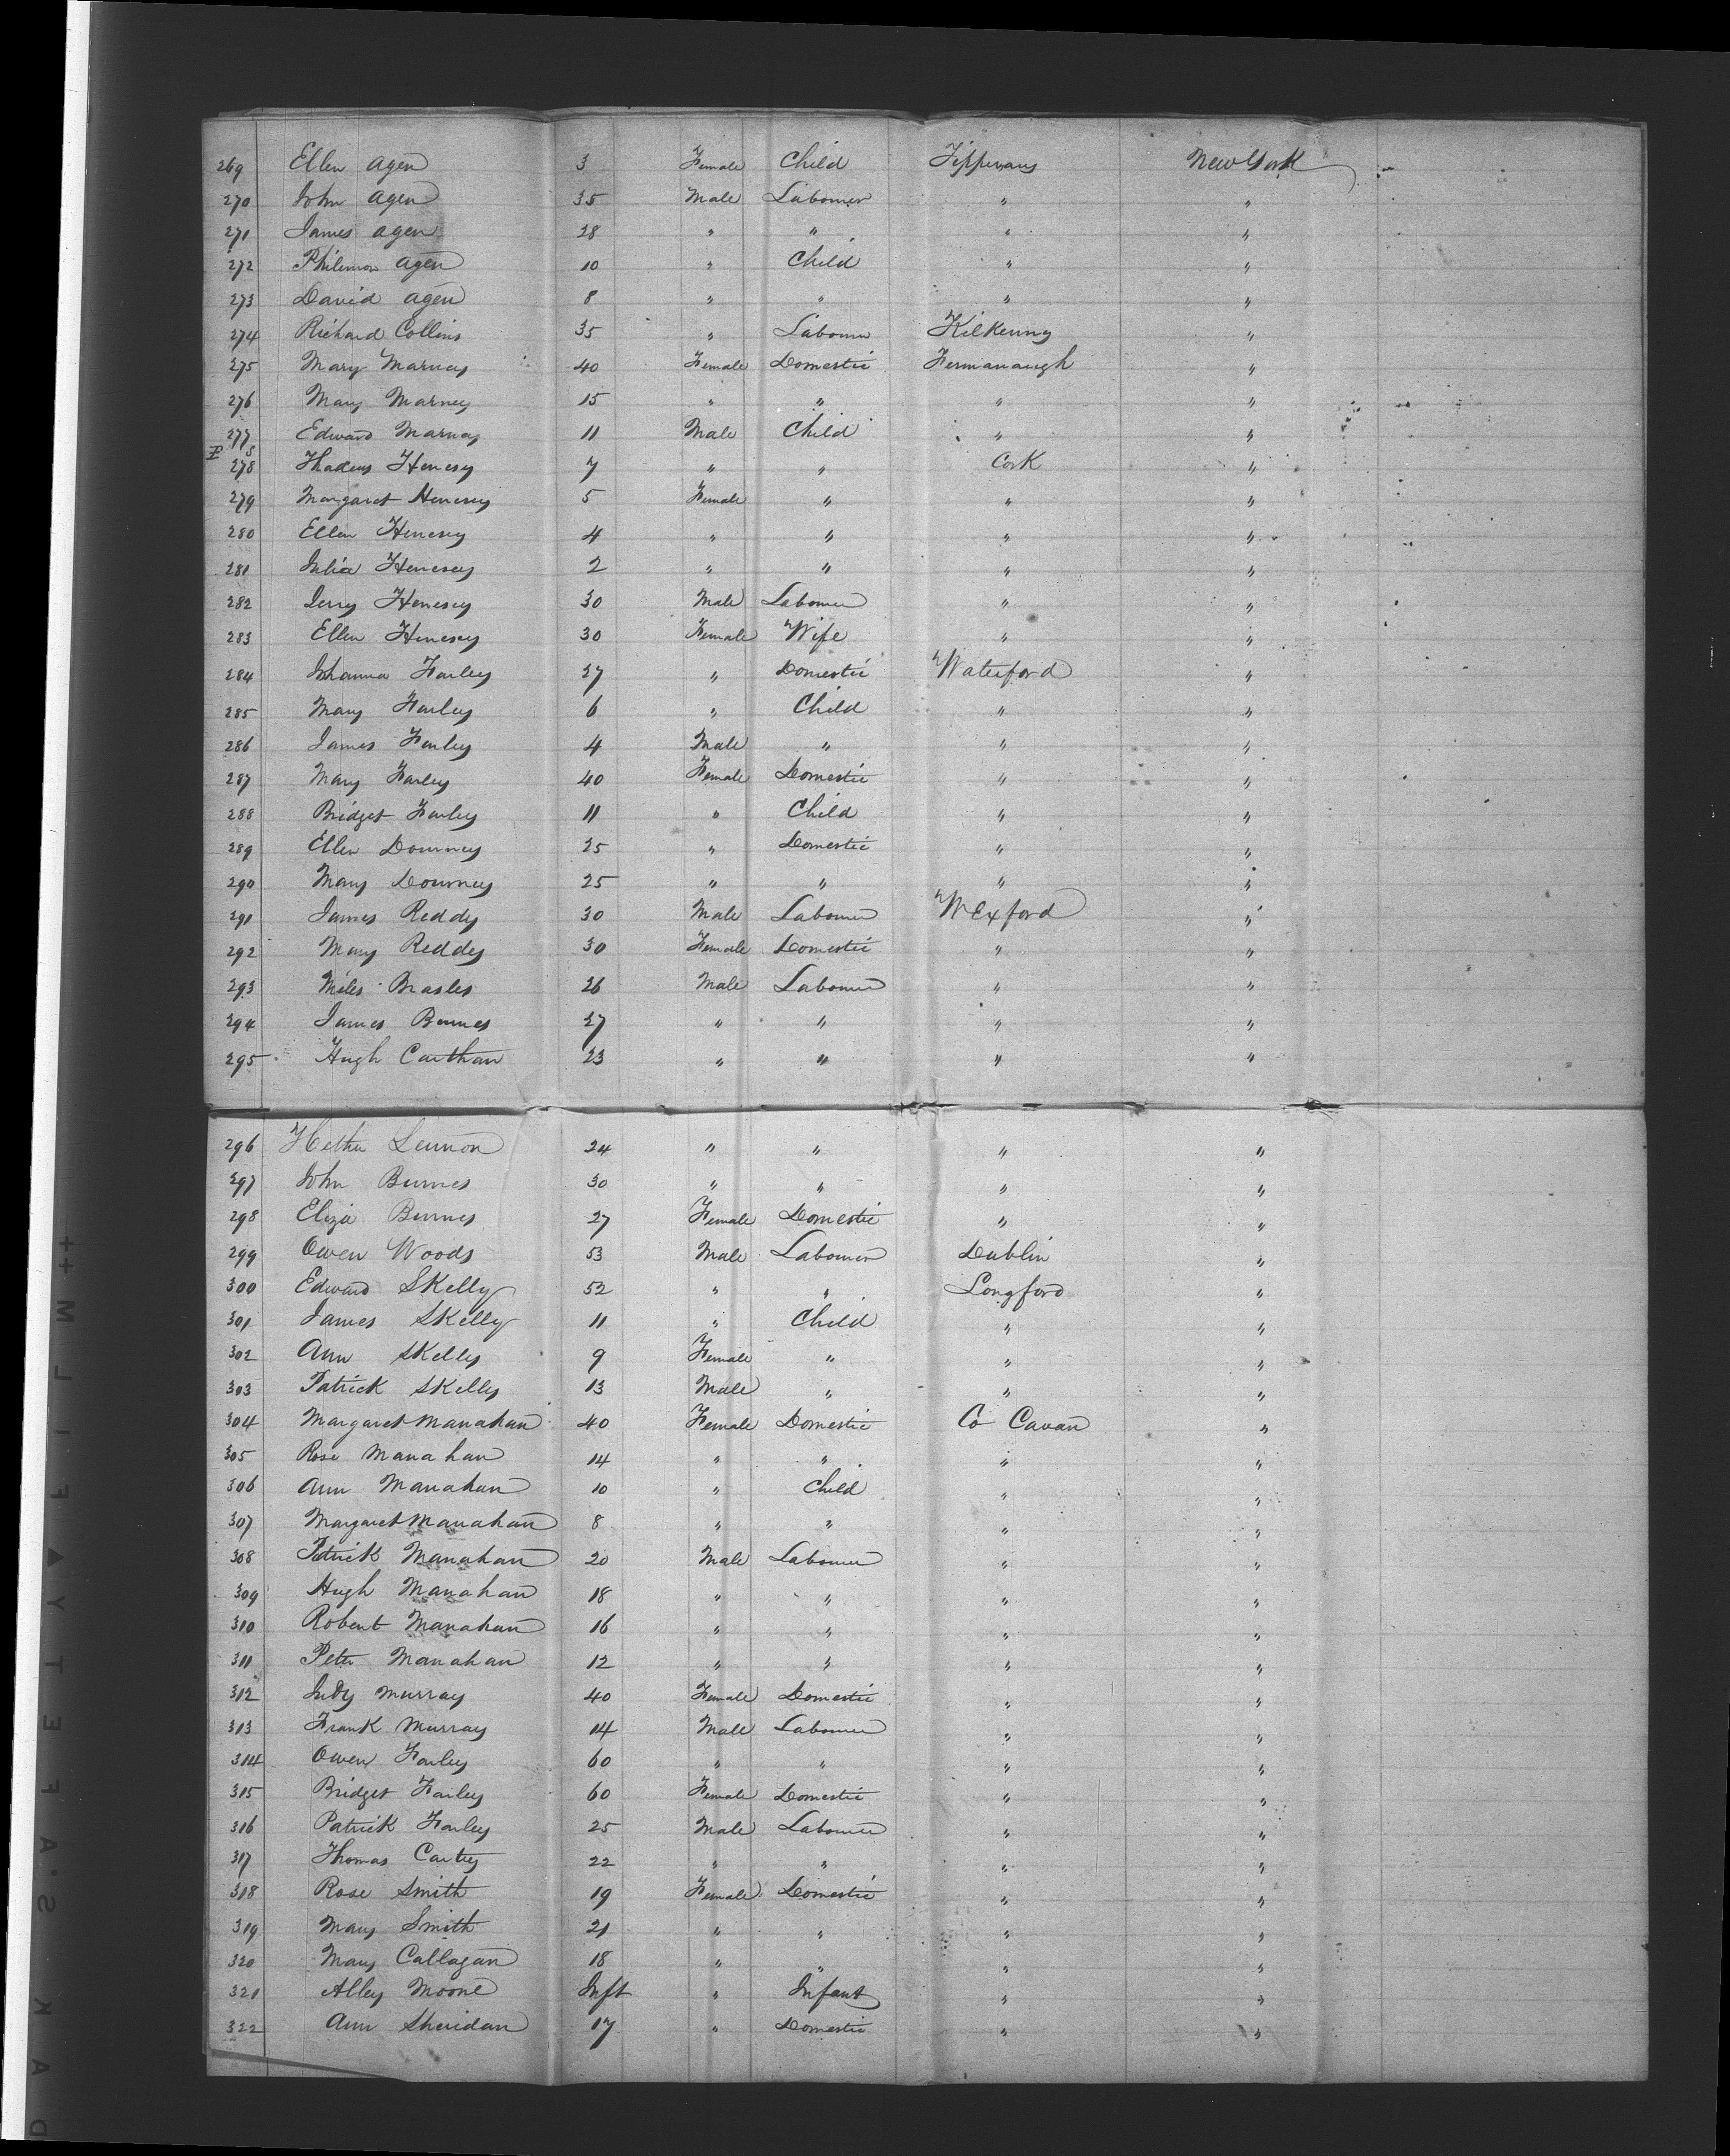 269 Ellen Agen 3 Female Child Tipperary New York
270 John Agen 35 Male Labourer " "
271 James Agen 28 " " " "
272 Philimon Agen 10 " Child " "
273 David Agen 8 " " " "
274 Richard Collins 35 " Labourer Kilkenny "
275 Mary Marney 40 Female Domestic Fermanaugh "
276 Mary Marney 15 " " " "
277 Edward Marney 11 Male Child " "
278 Thadeus Henesey 7 " " Cork "
279 Margaret Henesey 5 Female " " "
280 Ellen Henesey 4 " " " "
281 Julia Henesey 2 " " " "
282 Jerry Henesey 30 Male Labourer " "
283 Ellen Henesey 30 Female Wife " "
284 Johanna Farley 27 " Domestic Waterford "
285 Mary Farley 6 " Child " "
286 James Farley 4 Male " " "
287 Mary Farley 40 Female Domestic " "
288 Bridget Farley 11 " Child " "
289 Ellen Downey 25 " Domestic " "
290 Mary Downey 25 " " " "
291 James Reddy 30 Male Labourer Wexford "
292 Mary Reddy 30 Female Domestic " "
293 Miles 26 Male Labourer " "
294 James Burnes 27 " " " "
295 Hugh Carthan 23 " " " "
296 Lennon 24 " " " "
297 John Burnes 30 " " " "
298 Eliza Burnes 27 Female Domestic " "
299 Owen Woods 53 Male Labourer Dublin "
300 Edward Skelly 52 " " Longford "
301 James Skelly 11 " Child " "
302 Ann Skelly 9 Female " " "
303 Patrick Skelly 13 Male " " "
304 Margaret Manahan 40 Female Domestic Co Cavan "
305 Rose Manahan 14 " " " "
306 Ann Manahan 10 " Child " "
307 Margaret Manahan 8 " " " "
308 Patrick Manahan 20 Male Labourer " "
309 Hugh Manahan 18 " " " "
310 Robert Manahan 16 " " " "
311 Peter Manahan 12 " " " "
312 Judy Murray 40 Female Domestic " "
313 Frank Murray 14 Male Labourer " "
314 Owen Farley 60 " " " "
315 Bridget Farley 60 Female Domestic " "
316 Patrick Farley 25 Male Labourer " "
317 Thomas Cartey 22 " " " "
318 Rose Smith 19 Female Domestic " "
319 Mary Smith 21 " " " "
320 Mary Callagan 18 " " " "
321 Alley Moone Inft " Infant " "
322 Ann Sheridan 17 " Domestic " "